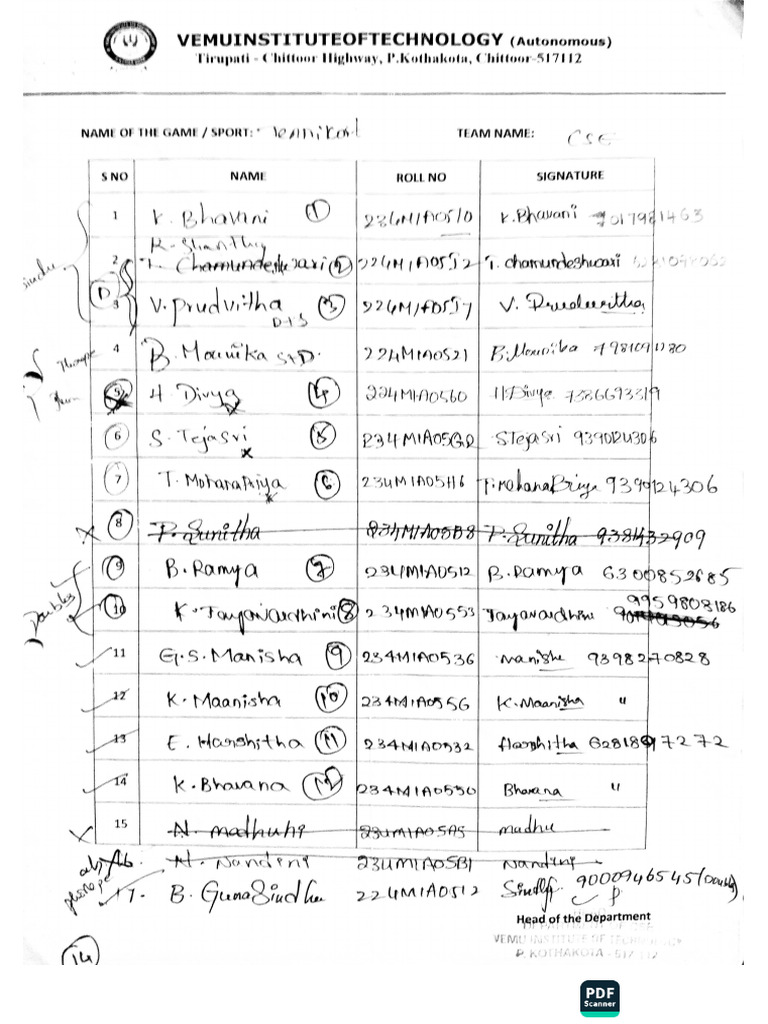 VEMUINSTITUTEOFTECHNOLOGY (Autonomous)
Tirupati - Chittoor Highway, P.Kothakota, Chittoor-517112
NAME OF THE GAME / SPORT: Tennikoit TEAM NAME: CSE
S NO NAME ROLL NO SIGNATURE
1 K. Bhavani 1 234M1A0510 K. Bhavani 7017981463
K. Shanthi
2 T. Chamundeshwari 2 224M1A05J2 T. chamundeshwari
D 3 V. Prudvitha 3 D+S V. Prudvitha
4 B. Mounika S+D. 224M1A0521 B. Mounika 7981091280
5 H. Divya 4 224M1A0560 H. Divya 7386693319
6 S. Tejasri 5 234M1A05G2 S Tejasri 9390124306
7 T. MohanaPriya 6 234M1A05H6 T. MohanaPriya 9390124306
8 P. Sunitha 234M1A05B8 P. Sunitha
9 B. Ramya 7 234M1A0512 B. Ramya 6300852685
Doubles 10 K. Jayavardhini 8 234M1A0553 Jayavardhini 9959808186
11 G.S. Manisha 9 234M1A0536 Manisha 9398270828
12 K. Maanisha 10 234M1A0556 K. Maanisha "
13 E. Harshitha 11 234M1A0532 Harshitha
14 K. Bhavana 12 234M1A0550 Bhavana "
15 N. madhuhi 234M1A05A5 madhu
N. Nandini 234M1A05B1 Nandini
17. B. GunaSindhu 224M1A0512 Sindhu 9000946545 (Double)
Head of the Department
DEPARTMENT OF CSE
VEMU INSTITUTE OF TECHNOLOGY
P. KOTHAKOTA - 517 112
14
PDF
Scanner